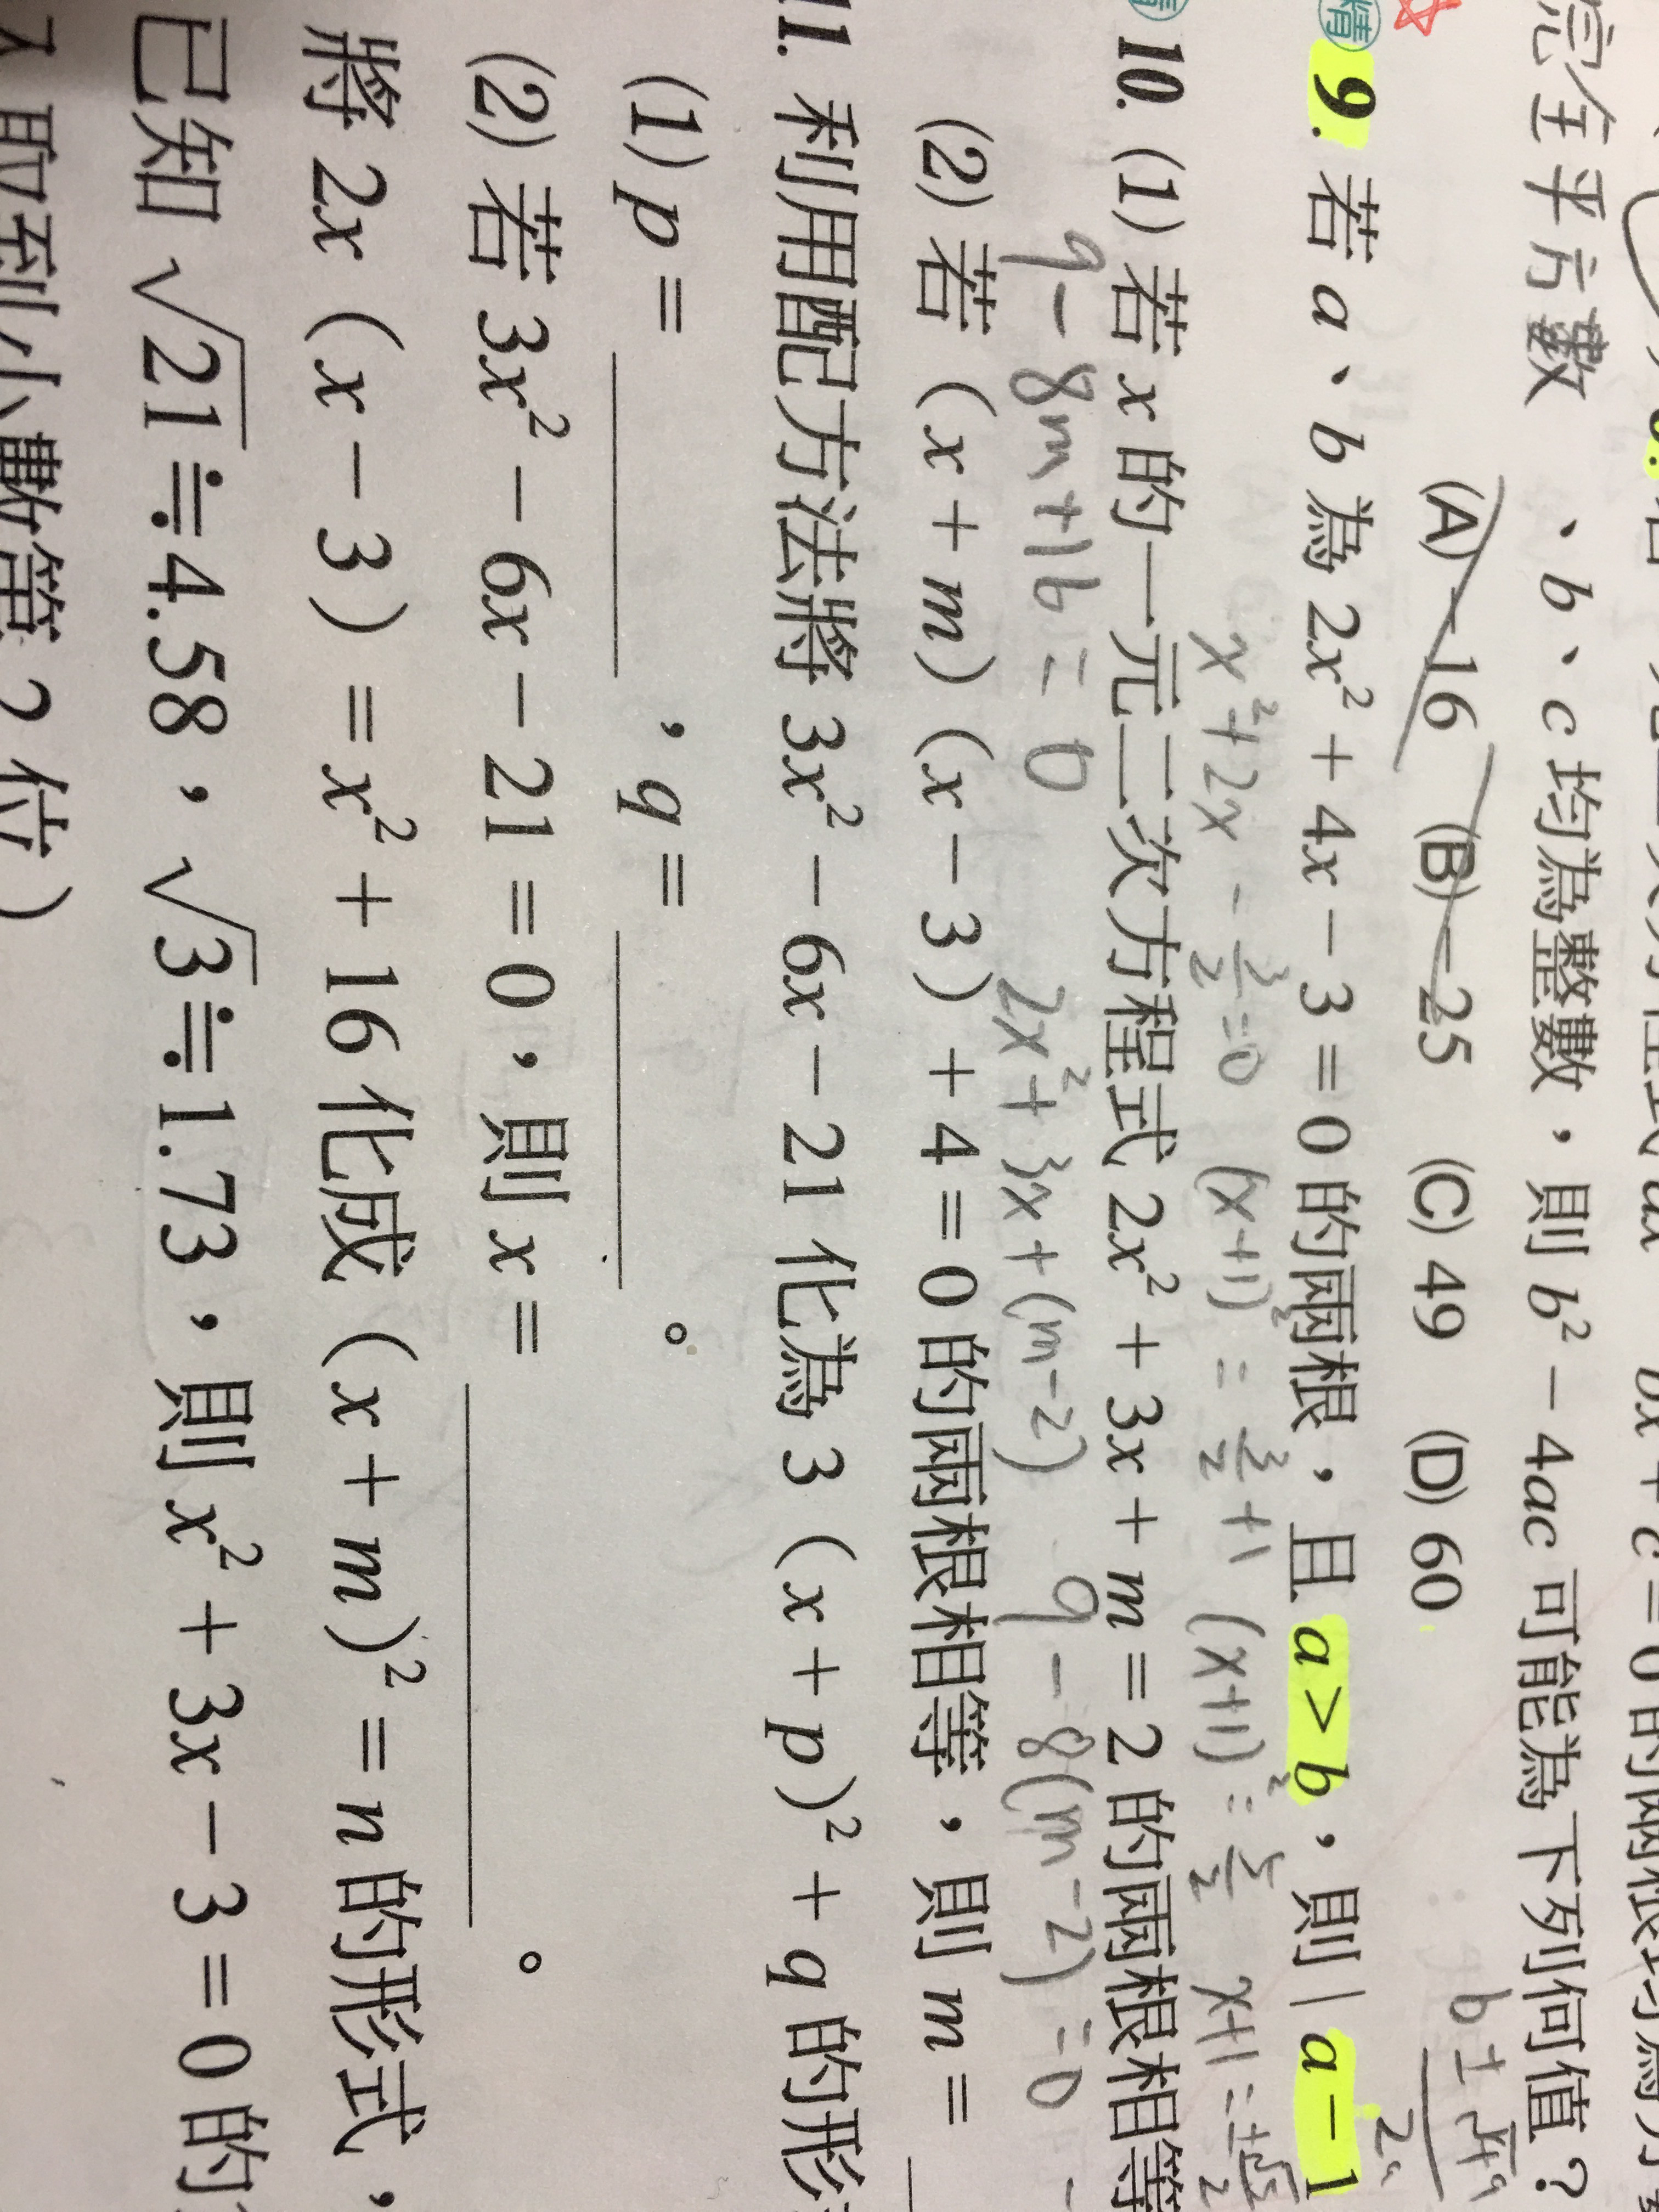 bx + c = 0 的兩根均為
完全平方數 、b、c 均為整數，則 b² − 4ac 可能為下列何值？
(A) −16 (B) −25 (C) 49 (D) 60
精 9. 若 a、b 為 2x² + 4x − 3 = 0 的兩根，且 a > b，則 | a − 1
x² + 2x − 3/2 = 0 (x+1)² = 3/2 + 1 (x+1)² = 5/2 x+1 = ±
10. (1) 若 x 的一元二次方程式 2x² + 3x + m = 2 的兩根相等
9 − 8m + 16 = 0 2x² + 3x + (m−2) 9 − 8(m−2) = 0
(2) 若（x + m）（x − 3）+ 4 = 0 的兩根相等，則 m =
11. 利用配方法將 3x² − 6x − 21 化為 3（x + p）² + q 的形
(1) p = ，q = 。
(2) 若 3x² − 6x − 21 = 0，則 x = 。
將 2x（x − 3）= x² + 16 化成（x + m）² = n 的形式，
已知 √21≒4.58，√3≒1.73，則 x² + 3x − 3 = 0 的
取到小數第 2 位）